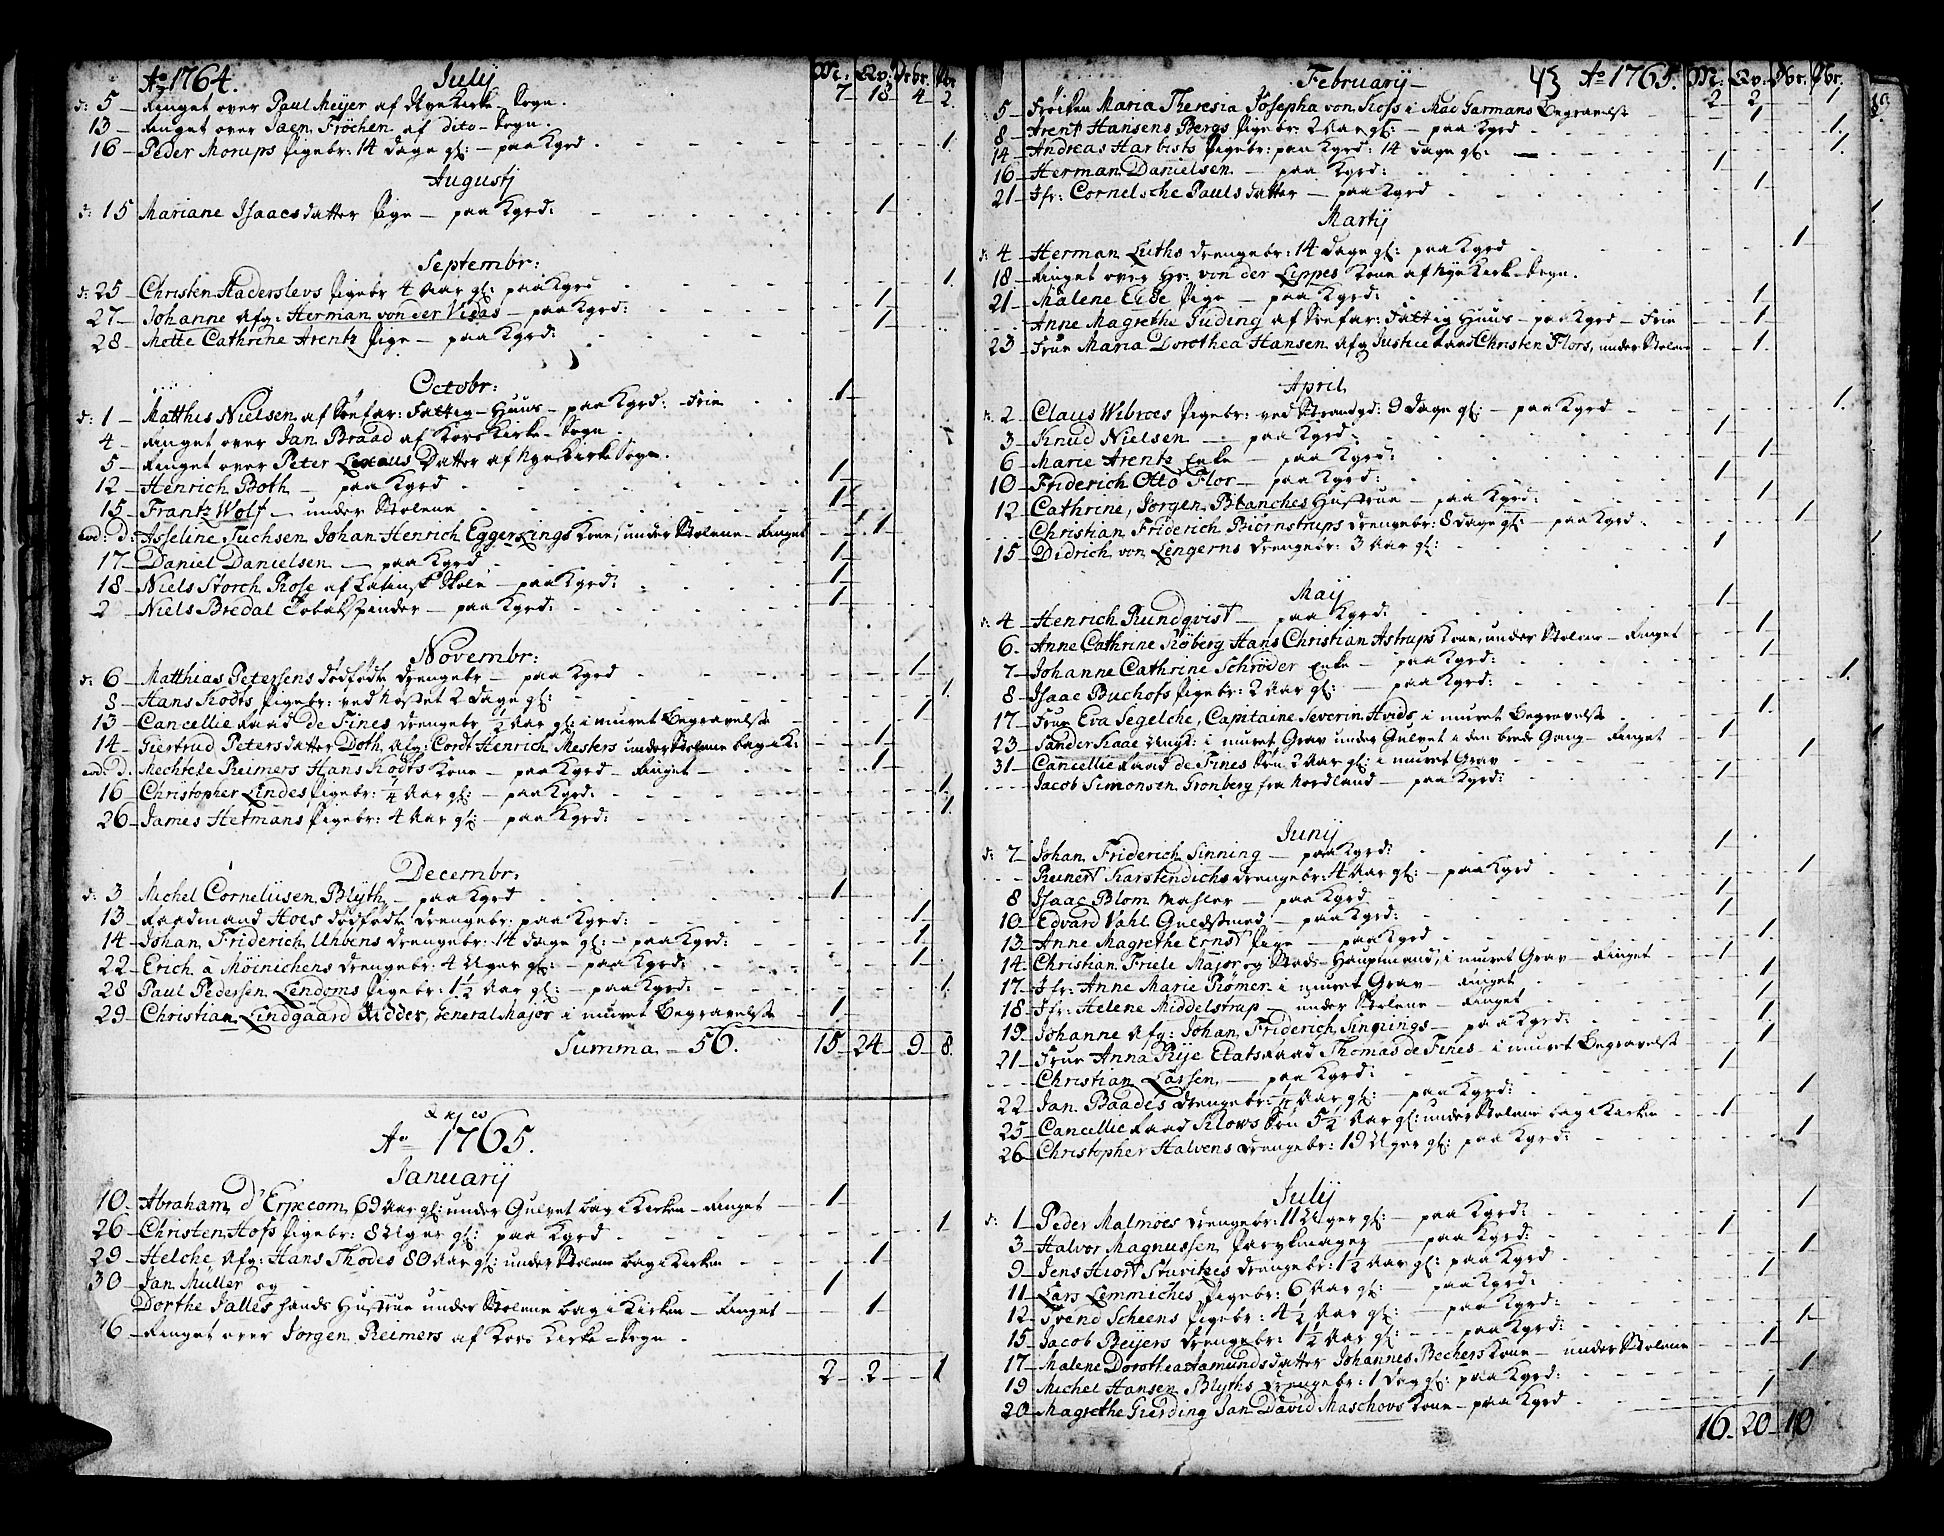 Ao 1764. July M: Qv: Drbr. Pbr
d: 5 – Ringet over Paul Meyer af Nye Kirke-Sogn. 7 – 18 – 4 – 2.
13 – Ringet over Jaen Fröchen af dito – Sogn.
16 – Peder Morups Pigebr: 14 dage gl: – paa Kgrd 1.
Augustj
d: 15 Mariane Isaacsdatter Pige – paa Kgrd: 1
Septembr:
d: 25 – Christen Haderslevs Pigebr 4 Aar gl: paa Kgrd 1.
27 – Johanne Afg: Herman von der Vidas – paa Kgrd: 1
28 – Mette Cathrine Arentz Pige – paa Kgrd: 1
Octobr:
d: 1 – Matthis Nielsen af Söefar: Fattig-Huus – paa Kgrd: – Frie 1
4 – Ringet over Jan Braad af Kors Kirke-Sogn
5 – Ringet over Peter Datter af Nye Kirke Sogn.
12 – Henrich Both – paa Kgrd 1
15 – Frantz Wolf – under Stolene 1
eod: d: Asseline Tuchsen Johan Henrich Eggerkings Kone, under Stolene – Ringet 1
17 – Daniel Danielsen – paa Kgrd 1
18 – Niels Storch Rose af Latinsk Skole – paa Kgrd: 1
2 – Niels Bredal Tobakspinder – paa Kgrd: 1
Novembr:
d: 6 – Matthias Petersens dödfödt drengebr – paa Kgrd 1
8 – Hans Kodts Pigebr: ved Nostet 2 dage gl: 1.
13 – Cancellie Raad De Fines drengebr ½ Aar gl: i muret Begravelse 1
14 – Giertrud Petersdatter Doth, Afg: Cordt Henrich Mesters under Stolene bag i K: 1
eod: D: Mechtele Reimers Hans Kodts Kone – paa Kgrd – Ringet – 1
16 – Christopher Lindes Pigebr: ¼ Aar gl: – paa Kgrd: 1.
26 – James Hetmans Pigebr: 4 Aar gl: – paa Kgrd: 1.
Decembr:
d: 3 Michel Corneliisen Blÿth – paa Kgrd 1
13 – Raadmand Hoes dödfödt drengebr: paa Kgrd: 1
14 – Johan Friderich Uhvens drengebr: 14 dage gl: – paa Kgrd: 1
22 – Erich à Möinichens drengebr: 4 Uger gl: – paa Kgrd: 1
28 – Paul Pedersen Lendoms Pigebr: 1½ Aar gl: – paa Kgrd: 1.
29 – Christian Lindgaard Ridder, General Major i muret Begravelse 1
Summa – 56. 15 – 24 – 9 – 8.
Ao 1765.
Januarij
10 – Abraham d'Erpecom, 69 Aar gl: under Gulvet bag i Kirken – Ringet 1
26 – Christen Hofs Pigebr: 8 Uger gl: paa Kgrd 1
29 – Helche, Afg: Hans Thodes 80 Aar gl: under Stolene bag i Kirken 1
30 – Jan Muller og 1
Dorthe Jalles hands Hustrue under Stolene bag i Kirken – Ringet 1
16 – Ringet over Jörgen Reimers af Kors Kirke-Sogn
2 – 2 – 1
Februarij – 43 Ao 1765. M: Qv: Dbr: Pbr.
5 – Fröiken Maria Theresia Josepha von Koss i Mad Garmans Begravelse 2 2 1
8 – Arent Hansens Bergs Pigebr: 2 Aar gl: – paa Kgrd 1.
14 – Andreas Harbists Pigebr: paa Kgrd: 14 dage gl: 1.
16 – Herman Danielsen – paa Kgrd: 1
21 – Jfr: Cornelsche Paulsdatter – paa Kgrd 1
Martij
d: 4 – Herman Luths drengebr: 14 dage gl: paa Kgrd 1
18 – Ringet over Hr: von der Lippes Kone af Nye Kirk-Sogn.
21 – Malene Eide Pige – paa Kgrd: 1
Anne Magrethe Juding af Söefar: Fattig Huus – paa Kgrd – Frie 1
23 – Frue Maria Dorothea Hansen Afg Justice Raad Christen Flors, under Stolene 1
April
d: 2 – Claus Wibroes Pigebr: ved Strandgd: 9 dage gl: – paa Kgrd 1.
3 – Knud Nielsen – paa Kgrd: 1
6 – Marie Arentz Enke – paa Kgrd: 1
10 – Friderich Otto Flor – paa Kgrd: 1
12 – Cathrine, Jörgen Blanches Hustrue – paa Kgrd: 1
Christian Friderich Biörnstrups drengebr: 8 dage gl: – paa Kgrd 1
15 – Didrich von Lengerns drengebr: 3 Aar gl: 1
Maij
d: 4 – Henrich Rundqvist – paa Kgrd: 1
6 – Anne Cathrine Röberg Hans Christian Astrups Kone, under Stolene – Ringet 1
7 – Johanne Cathrine Schröder Enke – paa Kgrd: 1
8 – Isaac Buchofs Pigebr: 2 Aar gl: – paa Kgrd: 1.
17 – Frue Eva Segelche, Capitaine Severin Hvids i muret Begravelse 1
23 – Sander Kaae Ungk: i muret Grav under Gulvet i den brede Gang – Ringet 1
31 – Cancellie Raad de Fines Sön 2 Aar gl: i muret Grav 1
Jacob Simonsen Gronberg fra Nordland – paa Kgrd: 1
Junij
d: 7 – Johan Friderich Sinning – paa Kgrd: 1
Reinert Karstendichs drengebr: 4 Aar gl: – paa Kgrd 1
8 Isaac Blom Mahler – paa Kgrd 1
10 – Edvard Vahl Guldsmed – paa Kgrd: 1
13 – Anne Magrethe Ernst Pige – paa Kgrd 1
14 – Christian Friele Major og Stads-Hauptmand, i muret Grav – Ringet 1
17 – Jfr: Anne Marie Römer i muret Grav – Ringet 1
18 – Jfr: Helene Middelstrup – under Stolene – Ringet 1
19 – Johanne Afg: Johan Friderich Sinnings – paa Kgrd: 1
21 – Frue Anna Rÿe Etats Raad Thomas de Fines – i muret Begravelse 1
Christian Larsen – paa Kgrd: 1
22 – Jan Baades drengebr: ¼ Aar gl: – paa Kgrd: 1
25 – Cancellie Raad Klows Sön 5½ Aar gl: under Stolene bag i Kirken 1
26 – Christopher Halvens drengebr: 19 Uger gl: paa Kgrd: 1
Julij
d: 1 – Peder Malmöes drengebr: 11 Uger gl: – paa Kgrd: 1
3 – Halvor Magnussen Parykmager – paa Kgrd: 1
9 – Jens Hiort Sturitzes drengebr: 1½ Aar gl: paa Kgrd 1
11 – Lars Lemmiches Pigebr: 6 Aar gl: – paa Kgrd: 1
12 – Svend Scheens Pigebr: 4½ Aar gl: – paa Kgrd:
15 – Jacob Beijers drengebr: 1½ Aar gl: – paa Kgrd: 1
17 – Malene Dorothea Aamundsdatter Johannes Bechers Kone – under Stolene 1
19 – Michel Hansen Blyths drengebr: 1 Dag gl: paa Kgrd: 1
20 – Magrethe Gierding Jan David Maschovs Kone – paa Kgrd 1
16 – 20 – 10